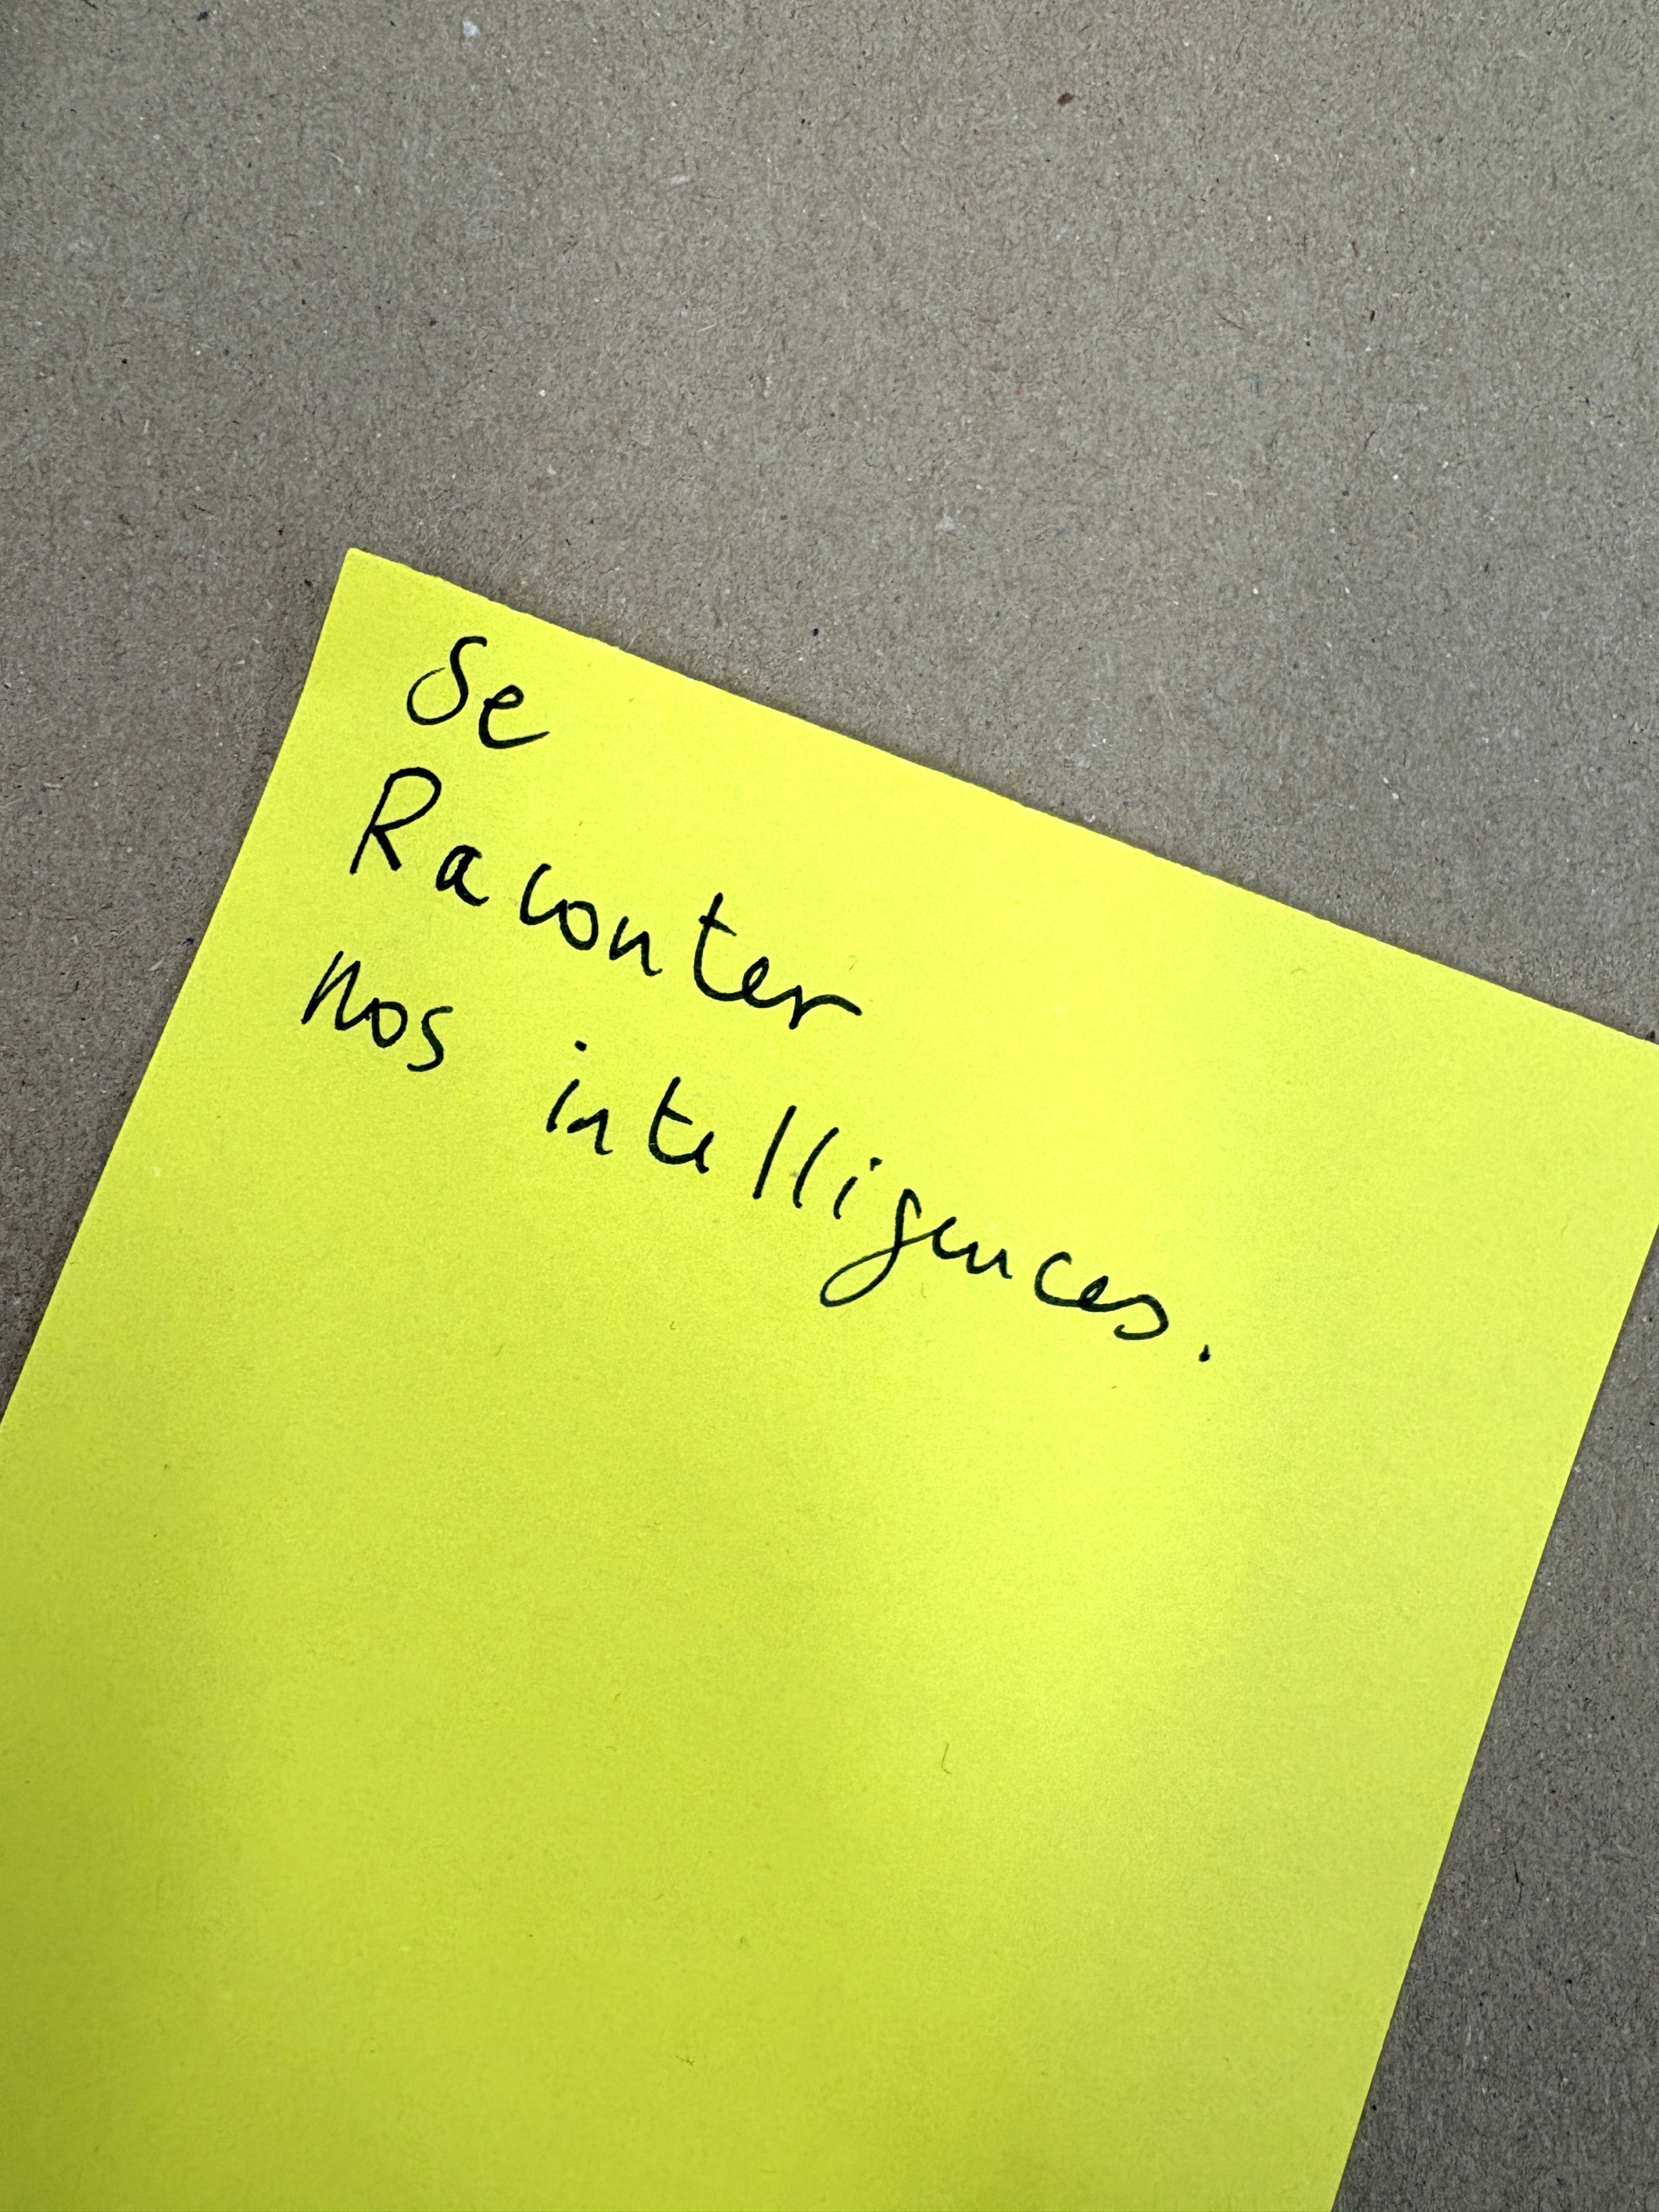 Se
Raconter
nos intelligences.